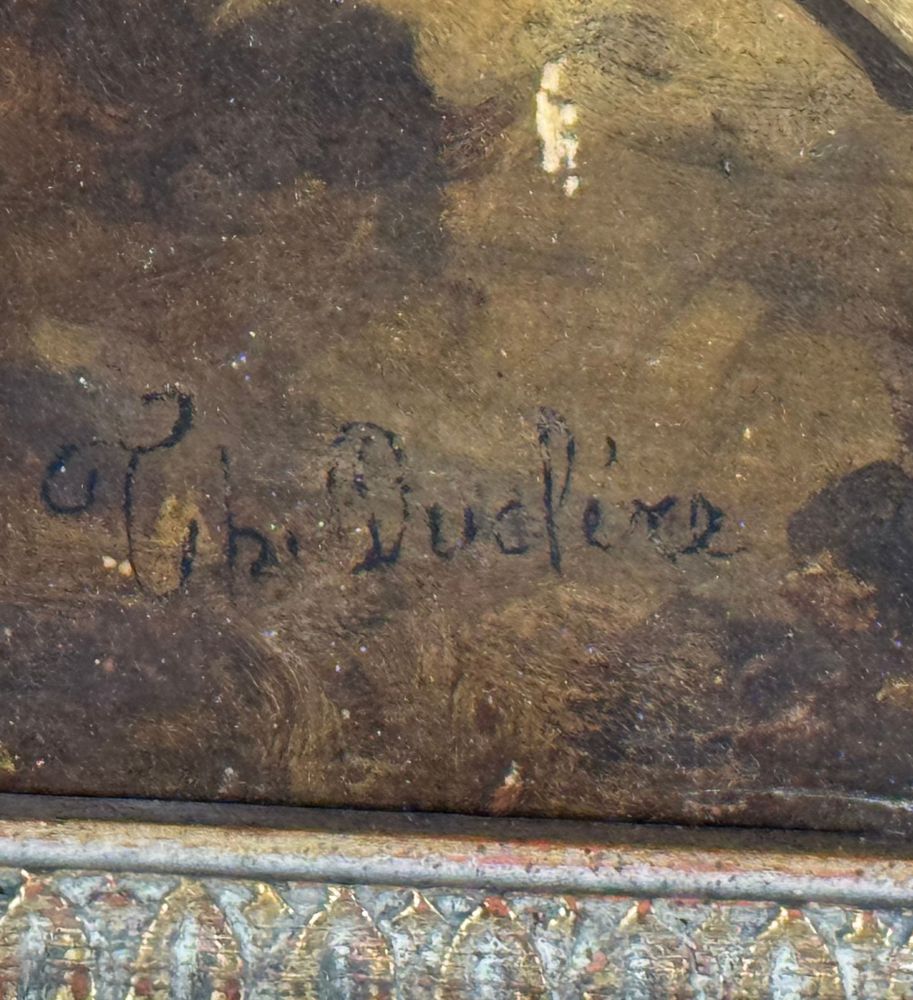 Th. Duclère